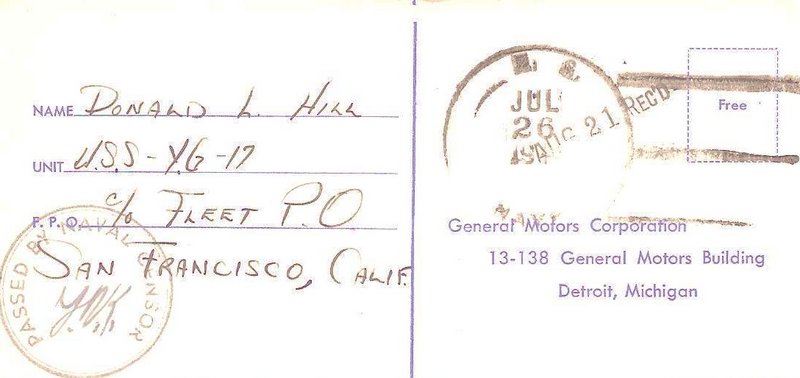 NAME DONALD L. HILL
UNIT U.S.S - Y.G - 17
F. P. O. c/o FLEET P.O
SAN FRANCISCO, CALIF.
PASSED BY NAVAL CENSOR
U. S.
JUL
26
AUG 21 REC'D
NAVY
Free
General Motors Corporation
13-138 General Motors Building
Detroit, Michigan